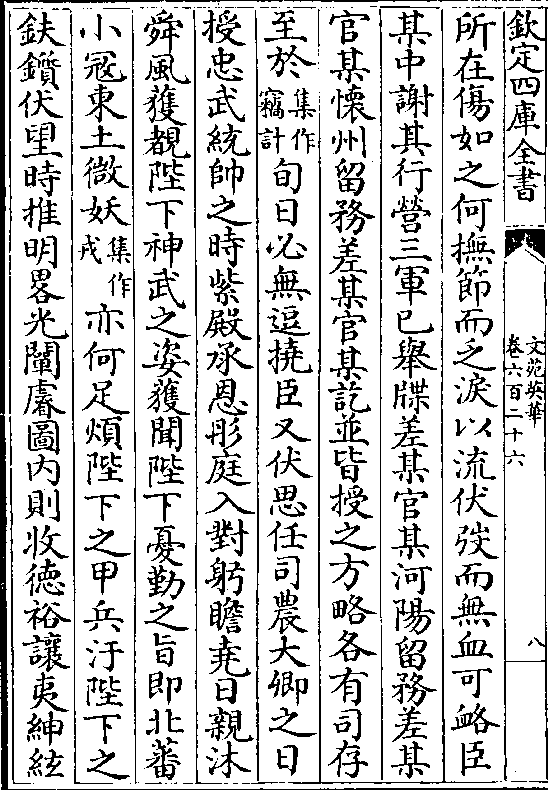 欽定四庫全書
文苑英華
卷六百二十六
八
所在傷如之何撫節而乏淚以流伏弢而無血可衂臣
其中謝其行營三軍已舉牒差某官某河陽留務差某
官某懷州留務差某官某訖並皆授之方略各有司存
至於集作竊計旬日必無逗撓臣又伏思任司農大卿之日
授忠武統帥之時紫殿承恩彤庭入對躬瞻堯日親沐
舜風獲覩陛下神武之姿獲聞陛下憂勤之旨即北蕃
小冦東土微妖集作戎亦何足煩陛下之甲兵汙陛下之
鈇鑕伏望時推明畧光闡廥圖内則收德裕讓夷紳紘